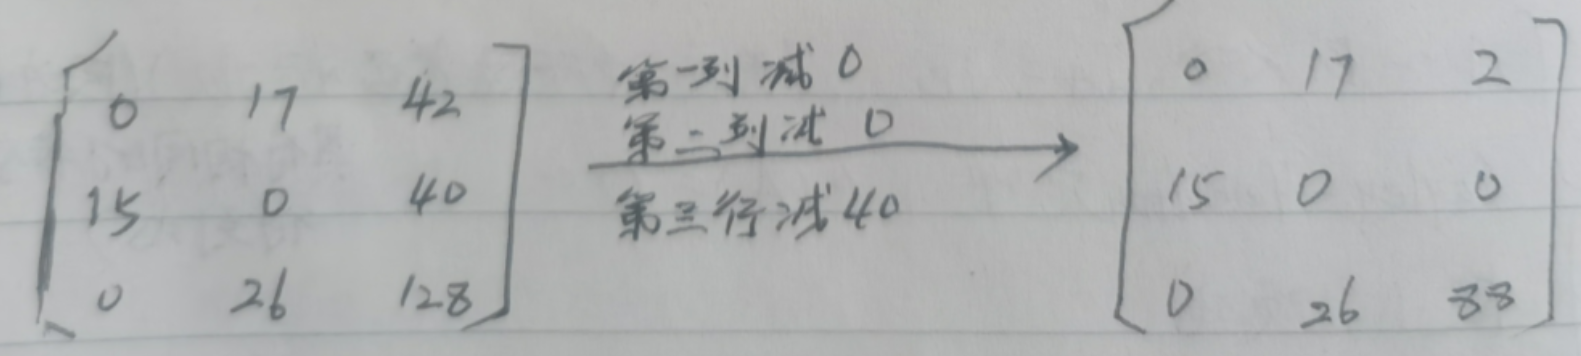 0 17 42
15 0 40
0 26 128
第一列减0
第二列减0
第三行减40
0 17 2
15 0 0
0 26 88